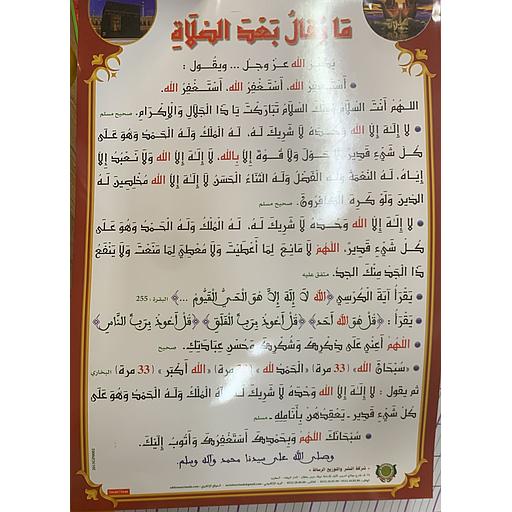 مَا يُقَالُ بَعْدَ الصَّلَاةِ
الله عز وجل ... ويقول :
أَسْتَغْفِرُ الله. أَسْتَغْفِرُ الله. أَسْتَغْفِرُ الله.
اللهم أَنْتَ السَّلَامُ وَمِنْكَ السَّلَامُ تَبَارَكْتَ يَا ذَا الْجَلَالِ وَالْإِكْرَامِ. صحيح مسلم
• لا إِلَـهَ إِلاَّ الله وَحْدَهُ لا شَرِيكَ لَـهُ، لَـهُ الْمُلْكُ وَلَـهُ الْحَمْدُ وَهُوَ عَلَى
كُلِّ شَيْءٍ قَدِيرٌ. لا حَوْلَ وَلَا قُوَّةَ إِلاَّ بِالله، لا إِلَـهَ إِلاَّ الله وَلَا نَعْبُدُ إِلاَّ
إِيَّاهُ، لَـهُ النِّعْمَةُ وَلَـهُ الْفَضْلُ وَلَـهُ الثَّنَاءُ الْحَسَنُ لا إِلَـهَ إِلاَّ الله مُخْلِصِينَ لَـهُ
الدِّينَ وَلَوْ كَرِهَ الْكَافِرُونَ. صحيح مسلم
• لا إِلَـهَ إِلاَّ الله وَحْـدَهُ لا شَرِيكَ لَـهُ، لَـهُ الْمُلْكُ وَلَـهُ الْحَمْدُ وَهُوَ عَلَـى
كُلِّ شَيْءٍ قَدِيرٌ، اللهم لا مَانِعَ لِمَا أَعْطَيْتَ وَلَا مُعْطِيَ لِمَا مَنَعْتَ وَلَا يَنْفَعُ
ذَا الْجَدِّ مِنْكَ الْجَدُّ. متفق عليه
• يَقْرَأُ آيَةَ الْكُرْسِي ﴿الله لَا إِلَهَ إِلاَّ هُوَ الْحَيُّ الْقَيُّومُ ...﴾ البقرة : 255
• يَقْرَأُ : ﴿قُلْ هُوَ الله أَحَدٌ﴾ ﴿قُلْ أَعُوذُ بِرَبِّ الْفَلَقِ﴾ ﴿قُلْ أَعُوذُ بِرَبِّ النَّاسِ﴾
• اللهم أَعِنِّي عَلَى ذِكْرِكَ وَشُكْرِكَ وَحُسْنِ عِبَادَتِكَ. صحيح
• «سُبْحَانَ الله» (33 مرة) «الْحَمْدُ لله» (33 مرة) «الله أَكْبَرُ» (33 مرة) البخاري
ثم يقول : لا إِلَـهَ إِلاَّ الله وَحْدَهُ لا شَرِيكَ لَـهُ لَـهُ الْمُلْكُ وَلَـهُ الْحَمْدُ وَهُوَ عَلَى
كُلِّ شَيْءٍ قَدِيرٌ. يَعْقِدُهُنَّ بِأَنَامِلِهِ. مسلم
• سُبْحَانَكَ اللهم وَبِحَمْدِكَ أَسْتَغْفِرُكَ وَأَتُوبُ إِلَيْكَ.
وصلى الله على سيدنا محمد وآله وسلم.
• شركة النشر والتوزيع الرسالة •